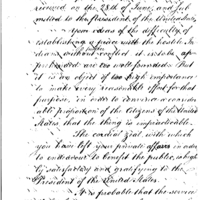 received on the 28th of June, and sub
mitted to the President of the United States.
Your ideas of the difficulty of
establishing a peace with the hostile In
dians, without
perhaps are too well founded. But
it is an object of too high importance
to make every reasonable effort for that
purpose, in order to convince a consider
able proportion of the citizens of the United
States that the thing is impracticable.
The cordial zeal with which
you have left your private affairs in order
to endeavour to benefit the public, is high
ly satisfactory and gratifying to the
President of the United States.
It is probable that the service